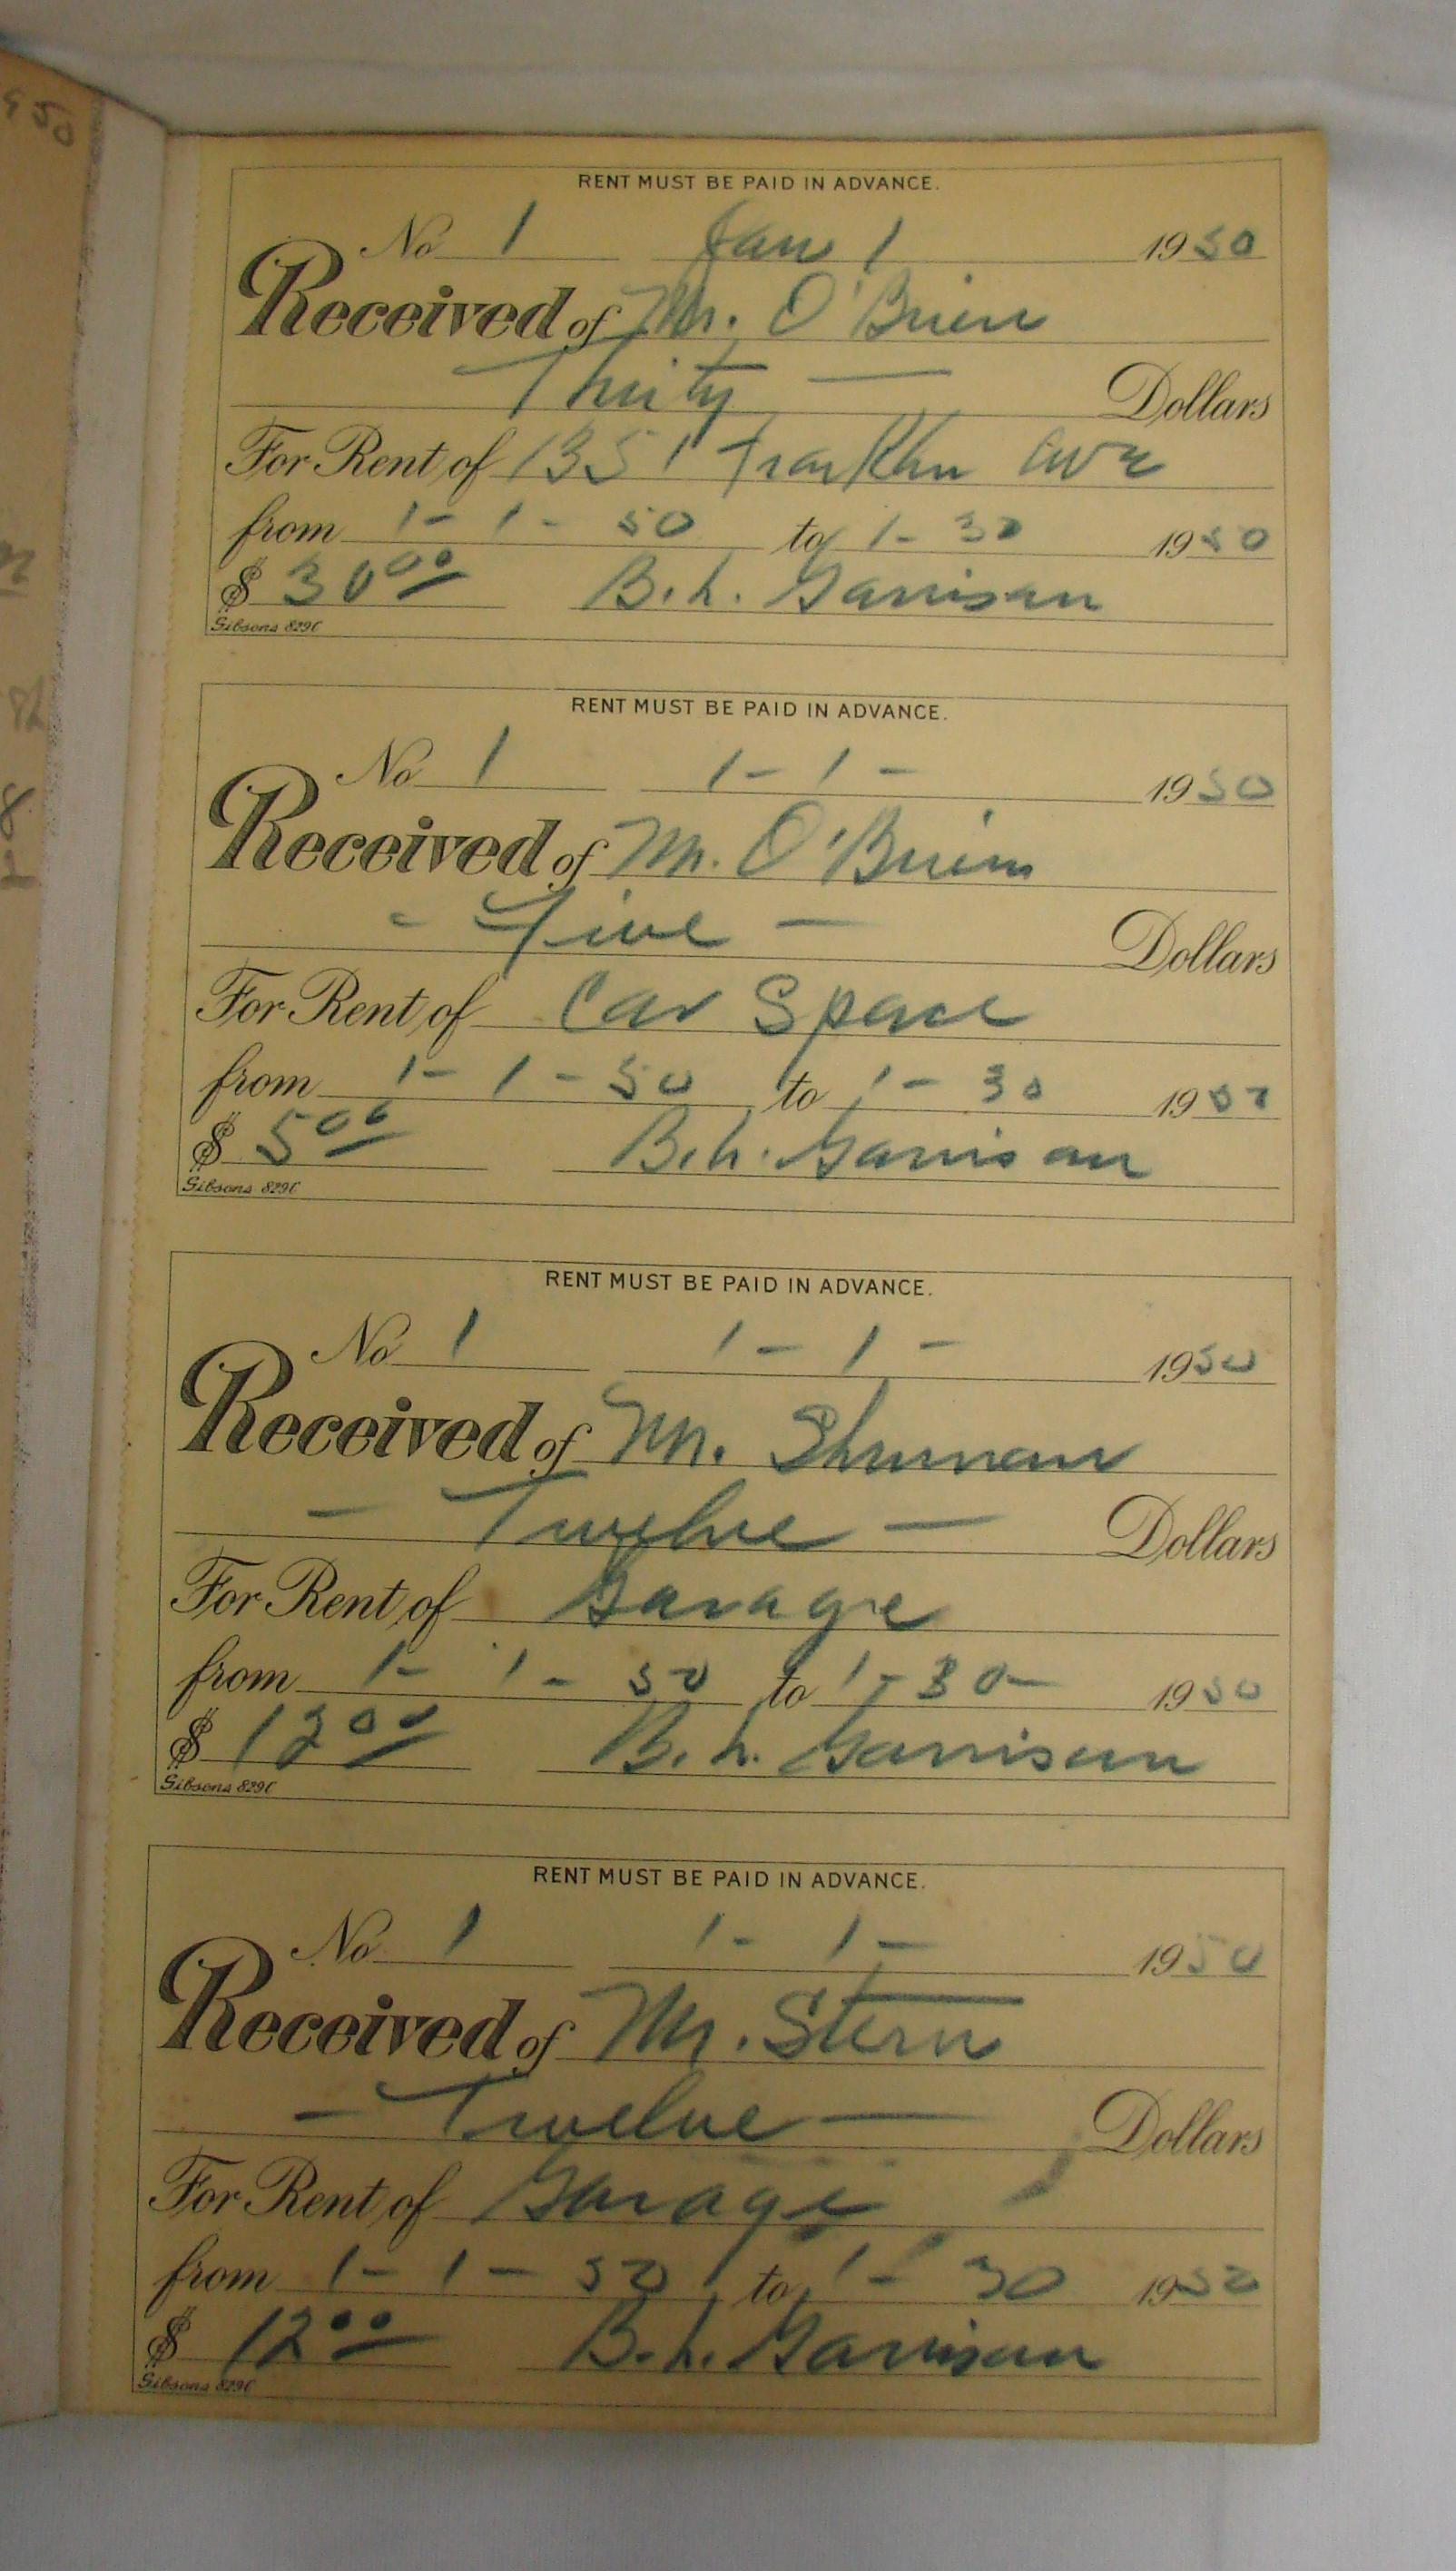 RENT MUST BE PAID IN ADVANCE.
No 1 Jan 1 1950
Received of Mr. O'Brien
Thirty — Dollars
For Rent of 1351 Franklin Ave
from 1-1-50 to 1-30 1950
$ 30 00 B.h. Garrison
Gibsons 829C
RENT MUST BE PAID IN ADVANCE.
No 1 1-1- 1950
Received of Mr. O'Brien
- Five — Dollars
For Rent of Car Space
from 1-1-50 to 1-30 1950
$ 5 00 B.h. Garrison
Gibsons 829C
RENT MUST BE PAID IN ADVANCE.
No 1 1-1- 1950
Received of Mr. Shuman
— Twelve — Dollars
For Rent of Garage
from 1-1-50 to 1-30- 1950
$ 12 00 B.h. Garrison
Gibsons 829C
RENT MUST BE PAID IN ADVANCE.
No 1 1-1- 1950
Received of Mr. Stern
— Twelve — Dollars
For Rent of Garage
from 1-1-50 to 1-30 1950
$ 12 00 B.h. Garrison
Gibsons 829C